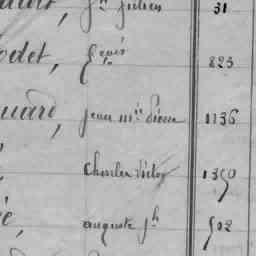 Jn Julien 31
odet, Fçois 823
uard, jean mie Pierre 1136
Charles Victor 1390
ée, auguste jh 502